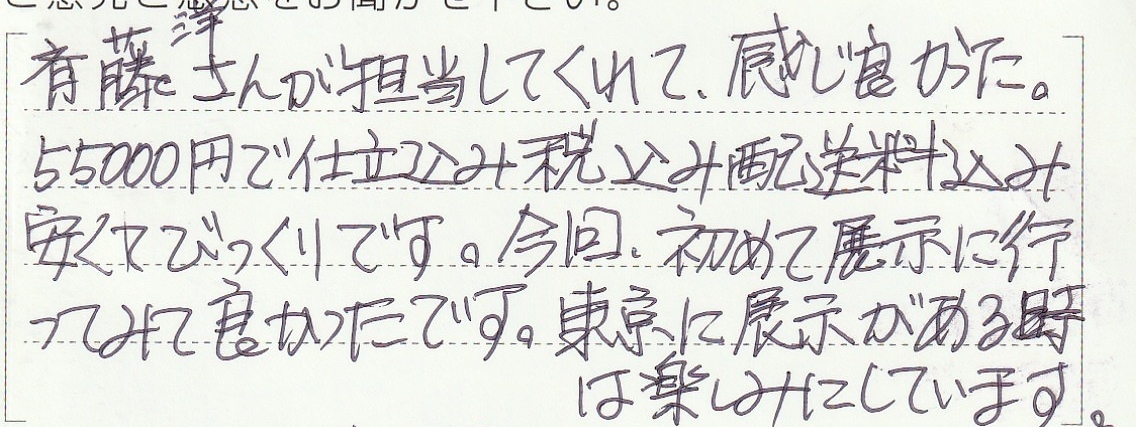 ご意見ご感想をお聞かせ下さい。
斉藤洋さんが担当してくれて、感じ良かった。
55000円で仕立込み税込み配送料込み
安くてびっくりです。今回、初めて展示に行
ってみて良かったです。東京に展示がある時
は楽しみにしています。